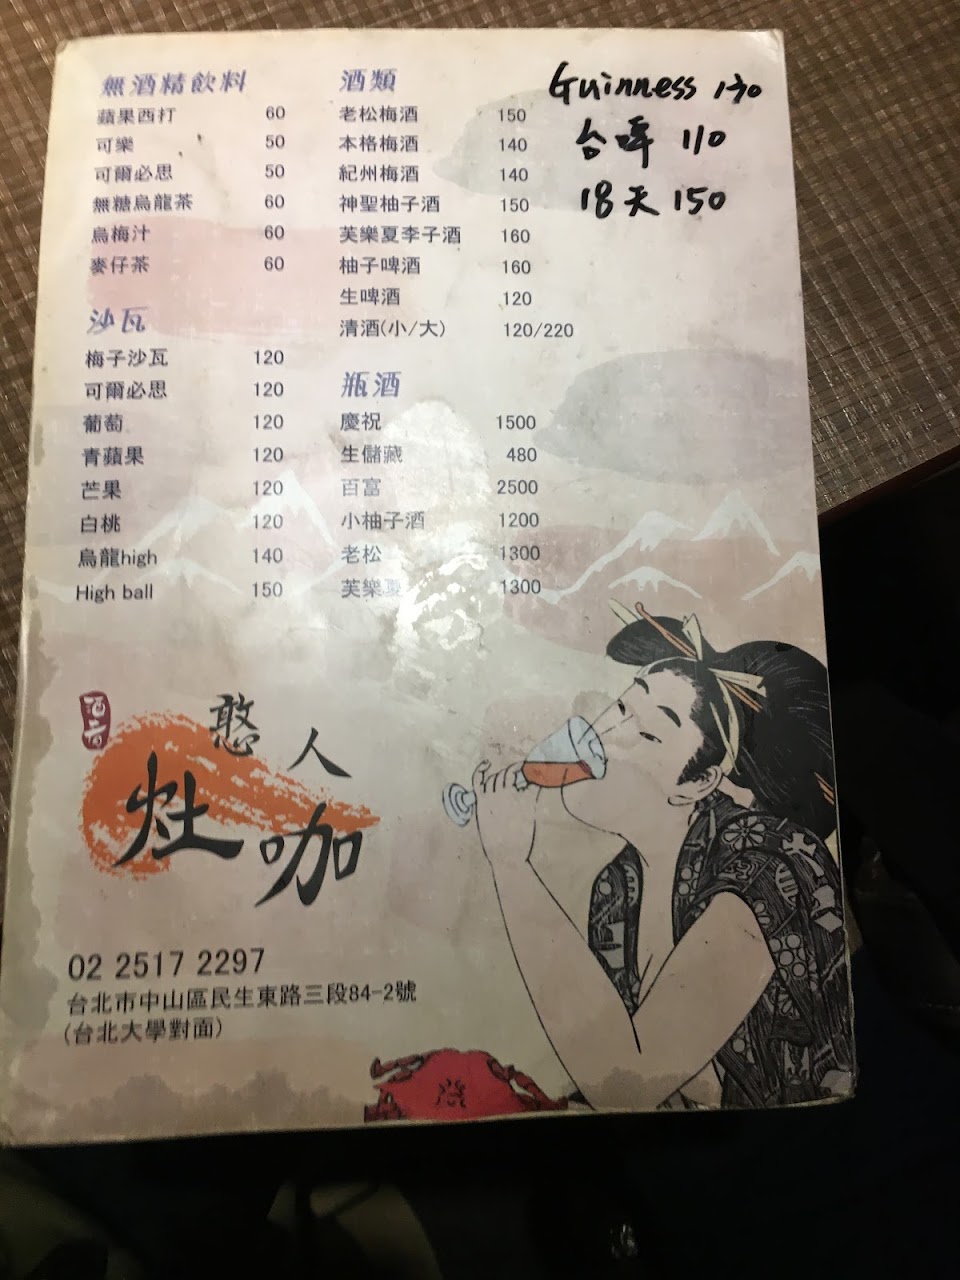 無酒精飲料
蘋果西打 60
可樂 50
可爾必思 50
無糖烏龍茶 60
烏梅汁 60
麥仔茶 60
沙瓦
梅子沙瓦 120
可爾必思 120
葡萄 120
青蘋果 120
芒果 120
白桃 120
烏龍high 140
High ball 150
酒類
老松梅酒 150
本格梅酒 140
紀州梅酒 140
神聖柚子酒 150
芙樂夏李子酒 160
柚子啤酒 160
生啤酒 120
清酒(小/大) 120/220
瓶酒
慶祝 1500
生儲藏 480
百富 2500
小柚子酒 1200
老松 1300
芙樂夏 1300
Guinness 170
台啤 110
18天 150
憨人
灶咖
02 2517 2297
台北市中山區民生東路三段84-2號
(台北大學對面)